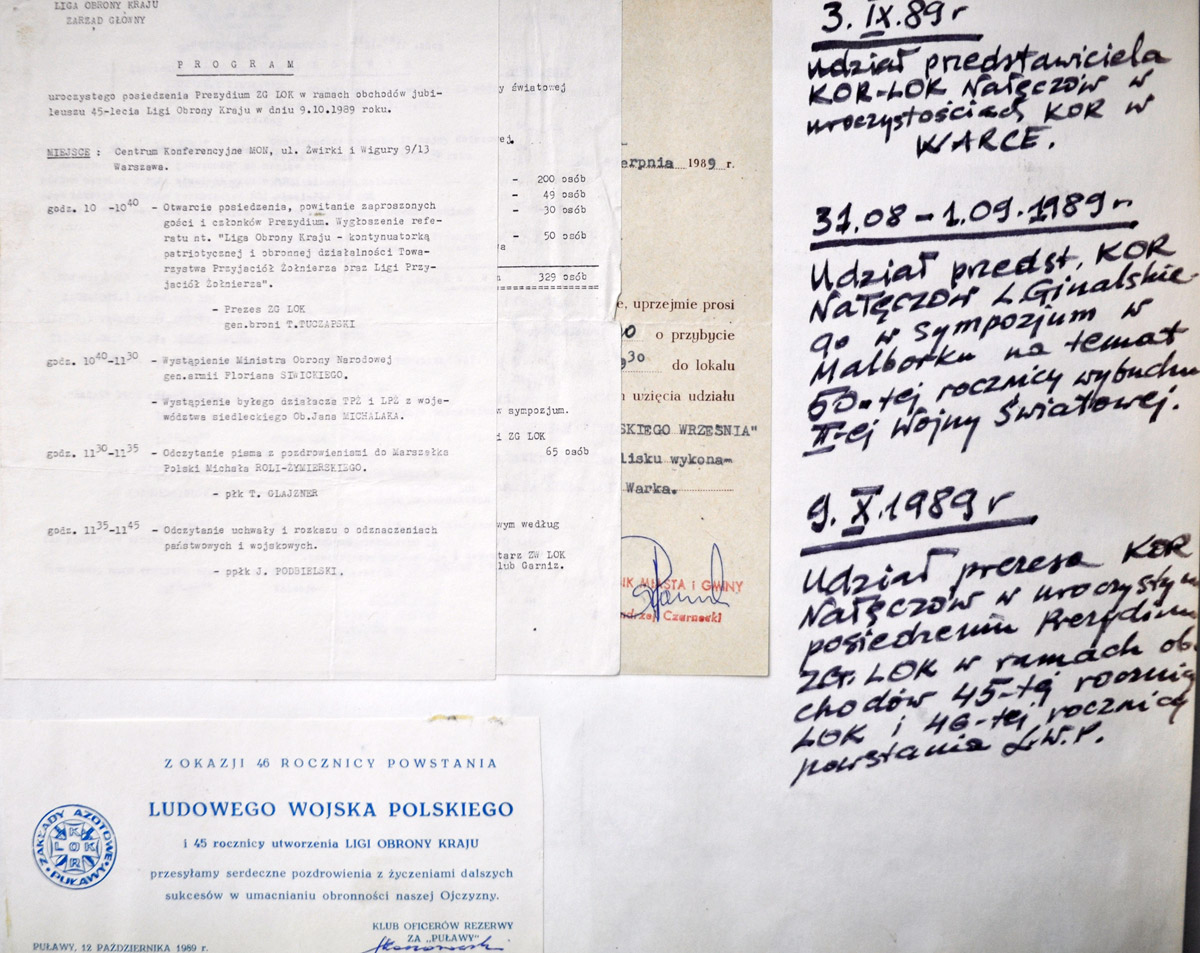 LIGA OBRONY KRAJU
ZARZĄD GŁÓWNY
P R O G R A M
uroczystego posiedzenia Prezydium ZG LOK w ramach obchodów jubi-
leuszu 45-lecia Ligi Obrony Kraju w dniu 9.10.1989 roku.
MIEJSCE : Centrum Konferencyjne MON, ul. Żwirki i Wigury 9/13
Warszawa.
godz. 10 -10⁴⁰ - Otwarcie posiedzenia, powitanie zaproszonych
gości i członków Prezydium. Wygłoszenie refe-
ratu nt. "Liga Obrony Kraju - kontynuatorką
patriotycznej i obronnej działalności Towa-
rzystwa Przyjaciół Żołnierza oraz Ligi Przy-
jaciół Żołnierza".
- Prezes ZG LOK
gen.broni T.TUCZAPSKI
godz. 10⁴⁰-11³⁰ - Wystąpienie Ministra Obrony Narodowej
gen.armii Floriana SIWICKIEGO.
- Wystąpienie byłego działacza TPŻ i LPŻ z woje-
wództwa siedleckiego Ob.Jana MICHALAKA.
godz. 11³⁰-11³⁵ - Odczytanie pisma z pozdrowieniami do Marszałka
Polski Michała ROLI-ŻYMIERSKIEGO.
- płk T. GLAJZNER
godz. 11³⁵-11⁴⁵ - Odczytanie uchwały i rozkazu o odznaczeniach
państwowych i wojskowych.
- ppłk J. PODBIELSKI.
y światowej
ej.
- 200 osób
- 49 osób
- 30 osób
- 50 osób
329 osób
w sympozjum.
i ZG LOK
65 osób
wym według
tarz ZW LOK
lub Garniz.
erpnia 1989 r.
e, uprzejmie prosi
o przybycie
9³⁰ do lokalu
uzięcia udziału
SKIEGO WRZEŚNIA"
lisku wykona-
Warka.
NIK MIASTA i GMINY
ndrzej Czarnecki
3. IX.89 r
udział przedstawiciela
KOR-LOK Nałęczów w
uroczystościach KOR w
WARCE.
31.08 - 1.09.1989 r.
Udział przedst. KOR
Nałęczów L.Ginalskie-
go w sympozjum w
Malborku na temat
50-tej rocznicy wybuchu
II-ej Wojny Światowej.
9. X.1989 r
Udział prezesa KOR
Nałęczów w uroczystym
posiedzeniu Prezydium
ZG. LOK w ramach ob-
chodów 45-tej rocznicy
LOK i 46-tej rocznicy
powstania L.W.P.
Z OKAZJI 46 ROCZNICY POWSTANIA
LUDOWEGO WOJSKA POLSKIEGO
i 45 rocznicy utworzenia LIGI OBRONY KRAJU
przesyłamy serdeczne pozdrowienia z życzeniami dalszych
sukcesów w umacnianiu obronności naszej Ojczyzny.
KLUB OFICERÓW REZERWY
ZA „PUŁAWY"
PUŁAWY, 12 PAŹDZIERNIKA 1989 r.
ZAKŁADY AZOTOWE
PUŁAWY
K
LOK
R